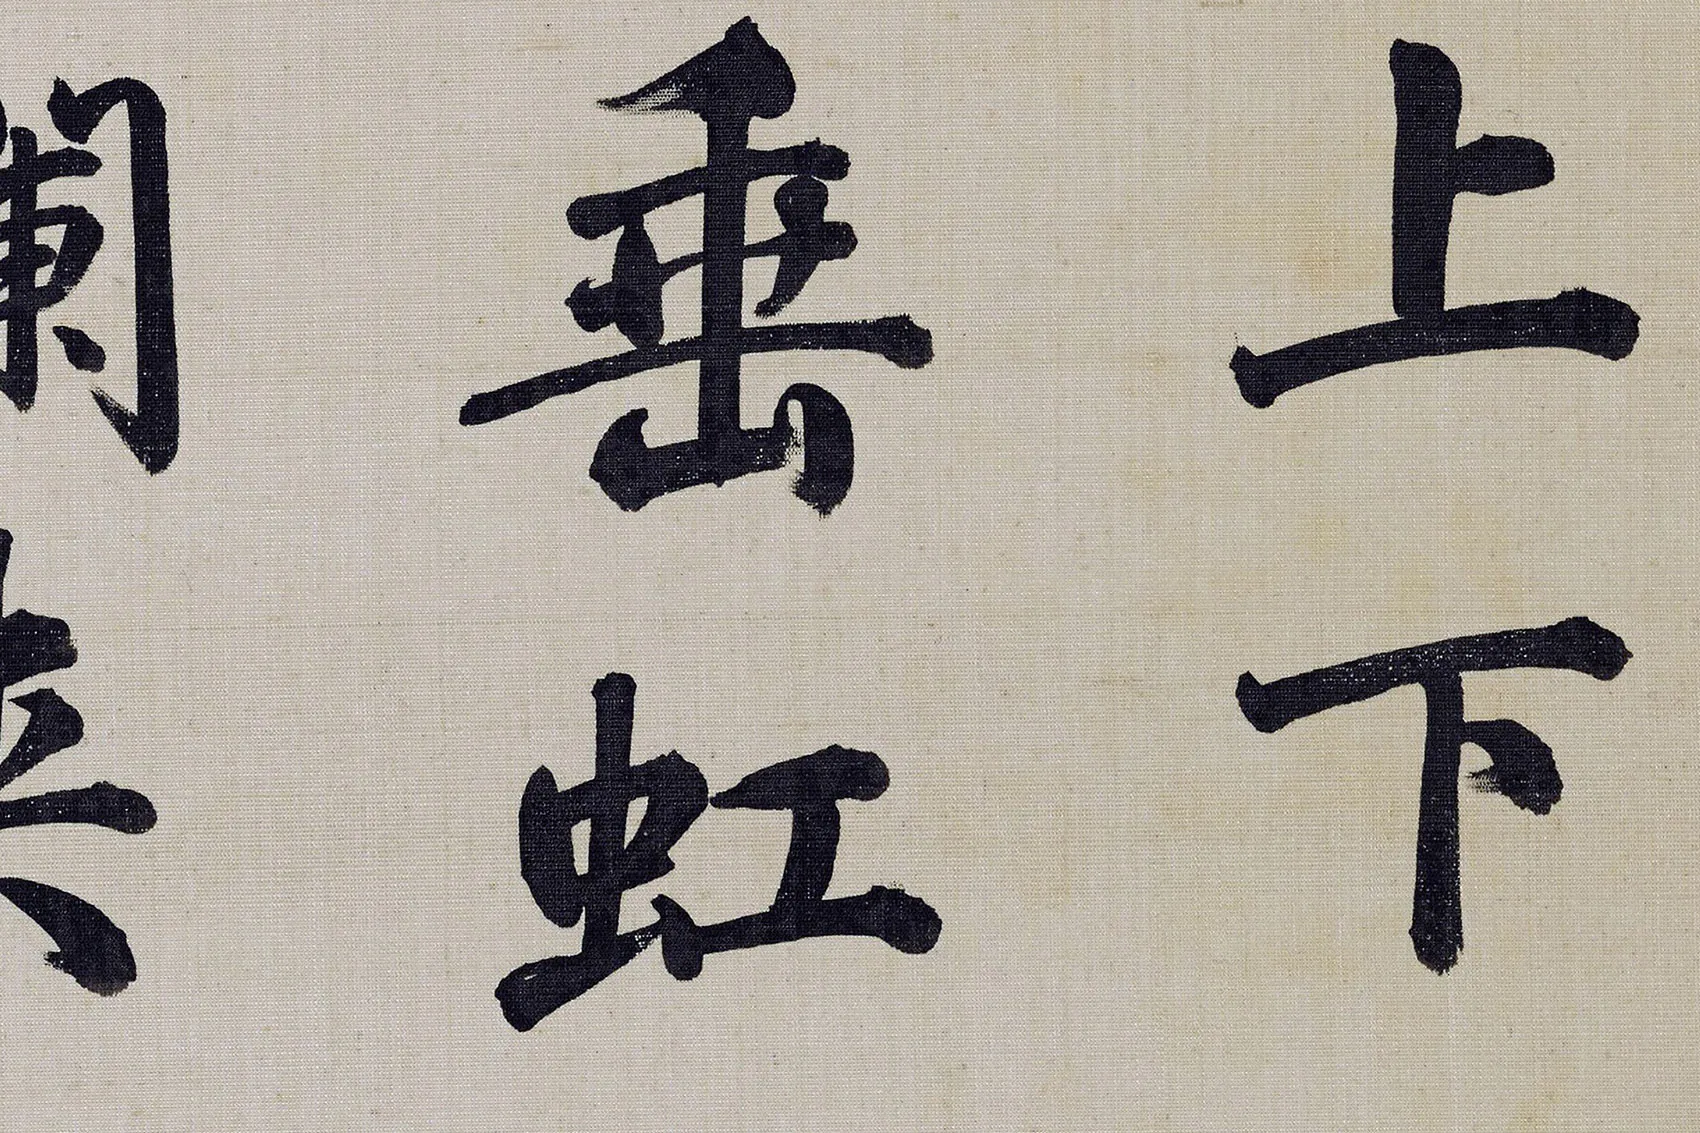 上下
垂虹